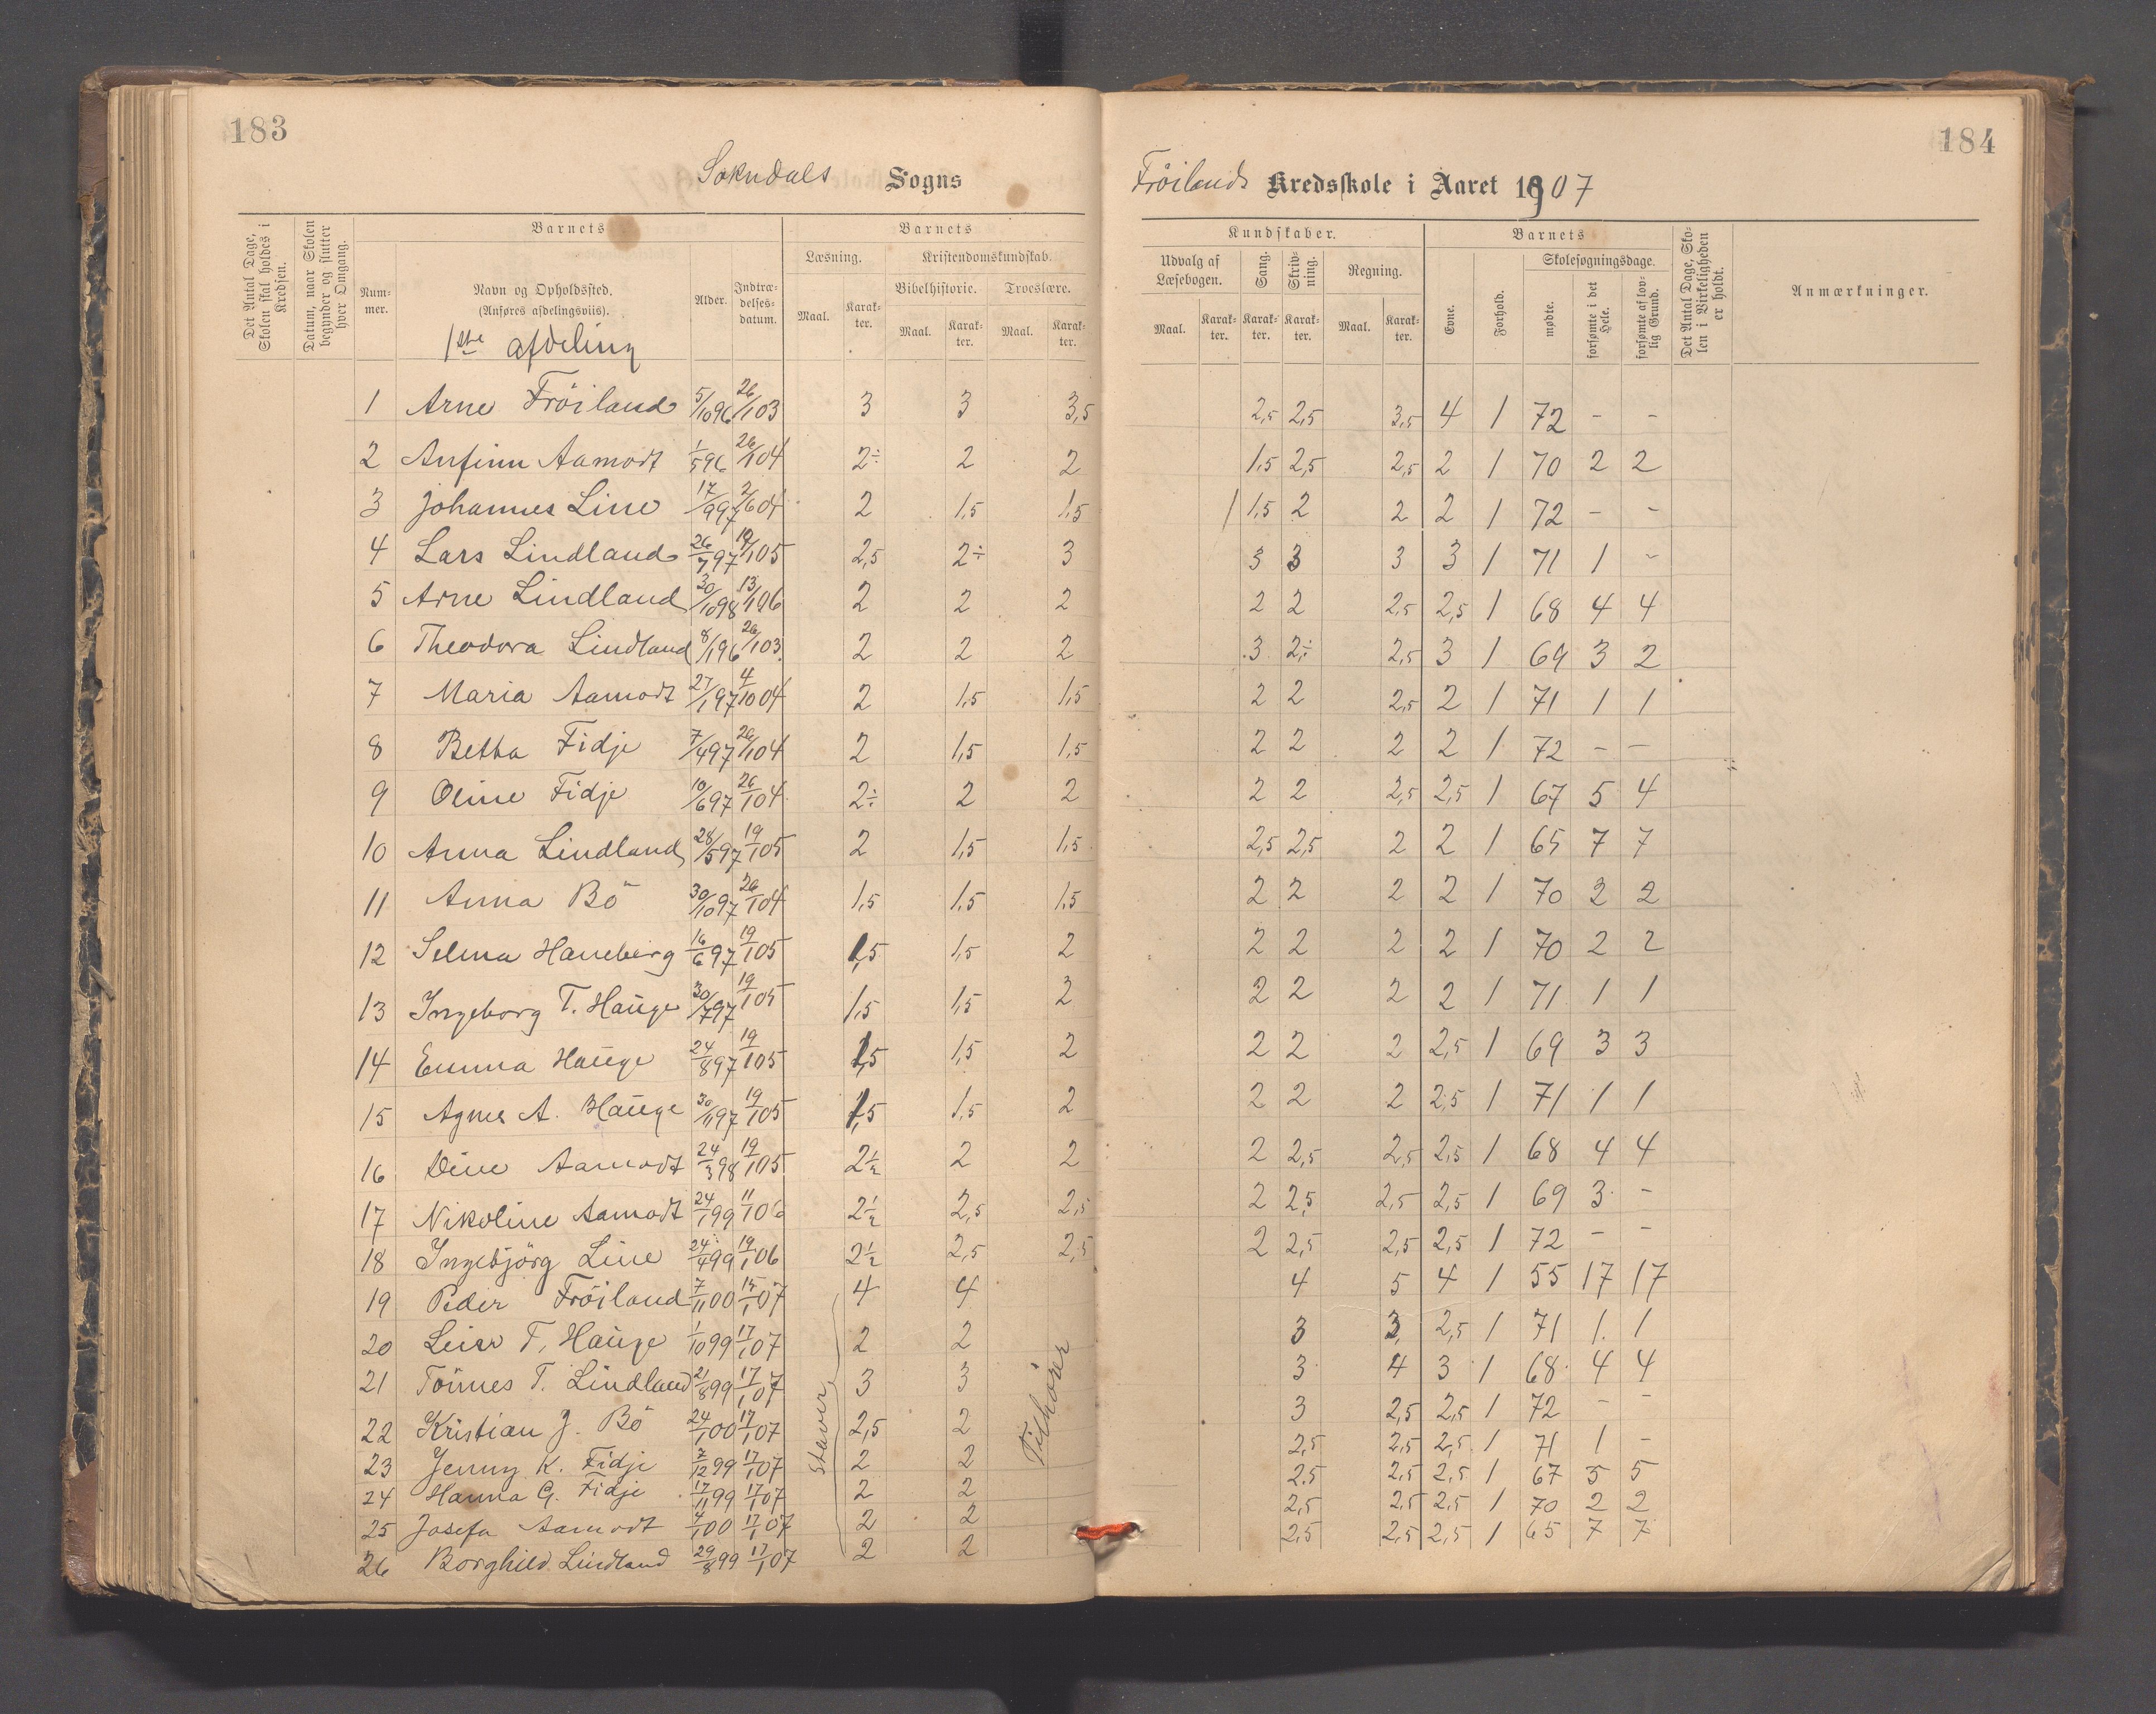 183
184
Sokndals Sogns
Fröilands Kredsskole i Aaret 1907
Det Antal Dage, Skolen skal holdes i Kredsen.
Datum, naar Skolen begynder og slutter hver Omgang.
Barnets
Barnets
Kundskaber.
Barnets
Det Antal Dage, Skolen i Virkeligheden er holdt.
Anmærkninger.
Nummer.
Navn og Opholdssted.
(Anføres afdelingsviis).
Alder.
Indtrædelsesdatum.
Læsning.
Kristendomskundskab.
Bibelhistorie.
Troeslære.
Maal. Karakter. Maal. Karakter. Maal. Karakter.
Udvalg af Læsebogen.
Sang.
Skrivning.
Regning.
Maal. Karakter. Karakter. Karakter. Maal. Karakter.
Evne.
Forhold.
Skolesøgningsdage.
mødte.
forsømte i det Hele.
forsømte af lovlig Grund.
1ste afdeling
1 Arne Fröiland 5/10 96 26/1 03 3 3 3,5 2,5 2,5 3,5 4 1 72 - -
2 Anfinn Aamodt 1/5 96 26/1 04 2÷ 2 2 1,5 2,5 2,5 2 1 70 2 2
3 Johannes Line 17/9 97 2/6 04 2 1,5 1,5 1 1,5 2 2 2 1 72 - -
4 Lars Lindland 26/7 97 19/1 05 2,5 2÷ 3 3 3 3 3 1 71 1 -
5 Arne Lindland 30/10 98 13/1 96 2 2 2 2 2 2,5 2,5 1 68 4 4
6 Theodora Lindland 8/1 96 26/1 03 2 2 2 3 2÷ 2,5 3 1 69 3 2
7 Maria Aamodt 27/1 97 4/10 04 2 1,5 1,5 2 2 2,5 2 1 71 1 1
8 Betha Fidje 7/4 97 26/1 04 2 1,5 1,5 2 2 2 2 1 72 - -
9 Oline Fidje 10/6 97 26/1 04 2÷ 2 2 2 2 2,5 2,5 1 67 5 4
10 Anna Lindland 28/5 97 19/1 05 2 1,5 1,5 2,5 2,5 2 2 1 65 7 7
11 Anna Bö 30/10 97 26/1 04 1,5 1,5 1,5 2 2 2 2 1 70 2 2
12 Selma Haneberg 16/6 97 19/1 05 1,5 1,5 2 2 2 2 2 1 70 2 2
13 Ingeborg T. Hauge 30/7 97 19/1 05 1,5 1,5 2 2 2 2 2 1 71 1 1
14 Emma Hauge 24/8 97 19/1 05 1,5 1,5 2 2 2 2 2,5 1 69 3 3
15 Agnes A. Hauge 30/11 97 19/1 05 1,5 1,5 2 2 2 2 2,5 1 71 1 1
16 Dine Aamodt 24/3 98 19/1 05 2½ 2 2 2 2,5 2,5 2,5 1 68 4 4
17 Nikoline Aamodt 24/1 99 11/1 06 2½ 2,5 2,5 2 2,5 2,5 2,5 1 69 3 -
18 Ingebjörg Line 24/4 99 19/1 06 2½ 2,5 2,5 2 2,5 2,5 2,5 1 72 - -
19 Peder Fröiland 7/11 00 15/1 07 4 4 4 5 4 1 55 17 17
20 T. Hauge 1/10 99 17/1 07 2 2 3 3 2,5 1 71 1 1
21 Tönnes T. Lindland 21/8 99 17/1 07 3 3 3 4 3 1 68 4 4
22 Kristian J. Bö 24/1 00 17/1 07 2,5 2 3 2,5 2,5 1 72 - -
23 Jenny K. Fidje 2/12 99 17/1 07 2 2 2,5 2,5 2,5 1 71 1 -
24 Hanna G. Fidje 17/11 99 17/1 07 2 2 2,5 2,5 2,5 1 67 5 5
25 Josefa Aamodt 4/1 00 17/1 07 2 2 2,5 2,5 2,5 1 70 2 2
26 Borghild Lindland 29/8 99 17/1 07 2 2 2,5 2,5 2,5 1 65 7 7
Staver
Tilhörer